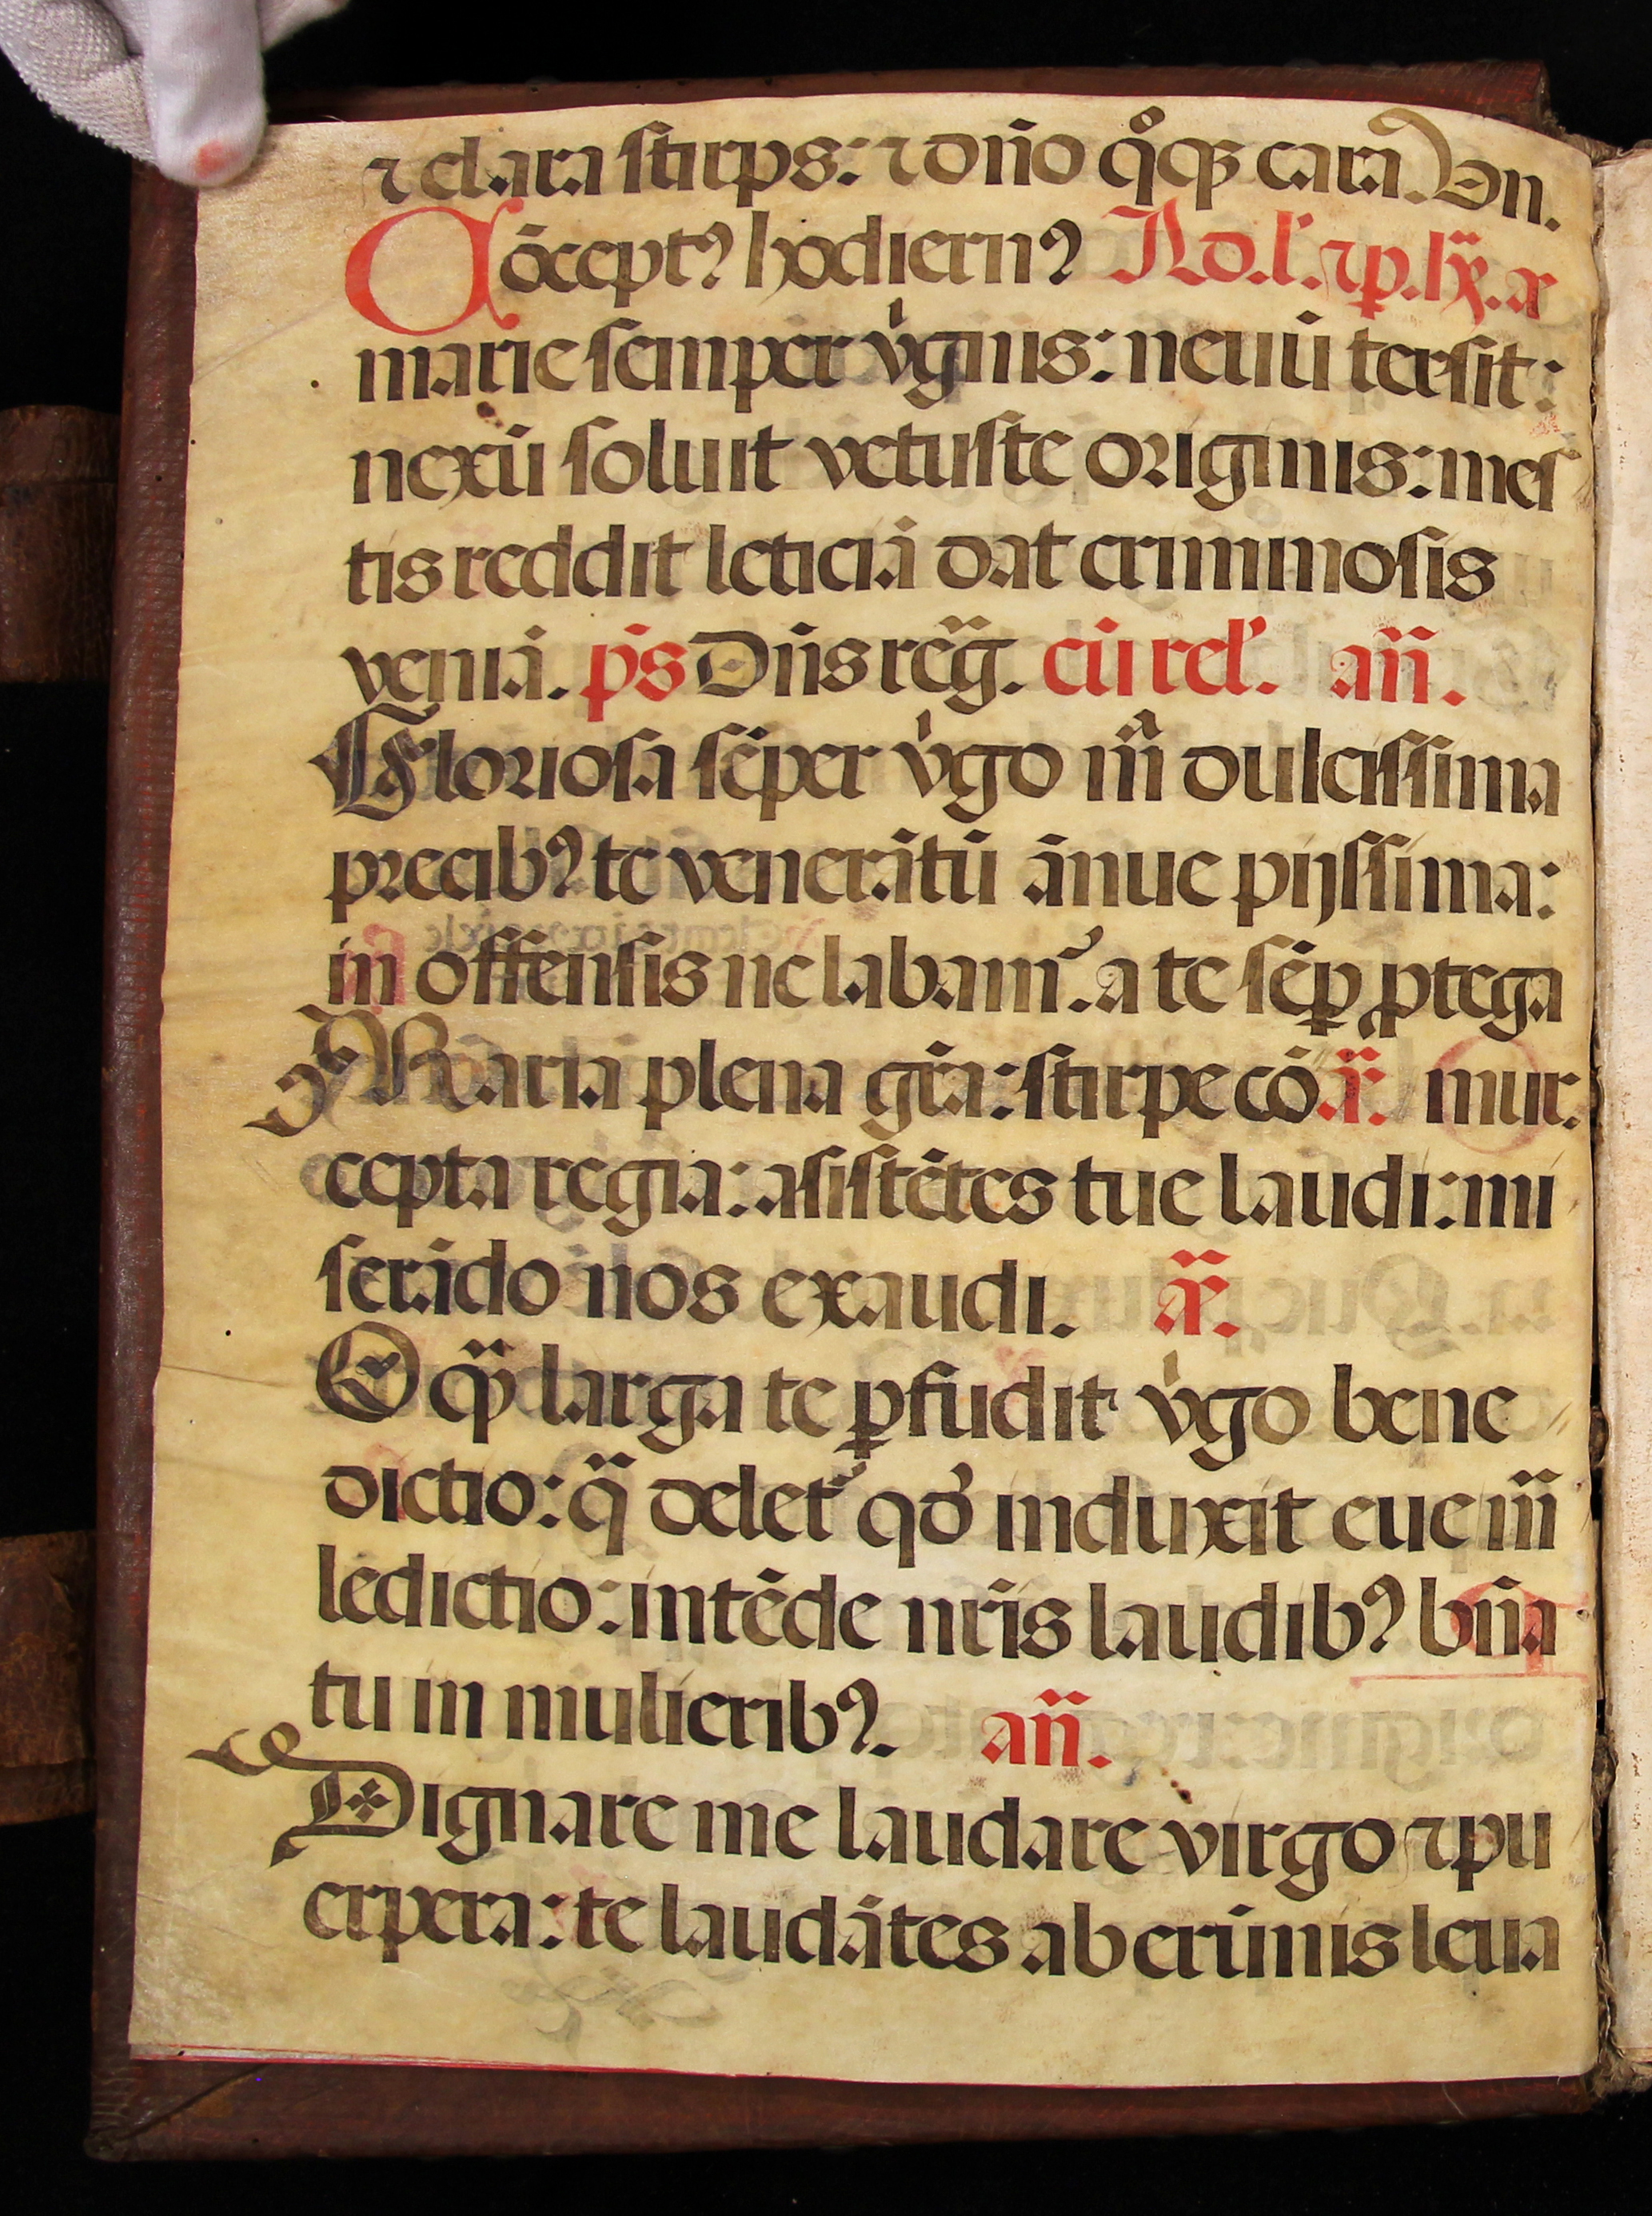 ⁊ clara stirps: ⁊ dño q̊qꝫ cara. Dn.
Cōcept⁹ hodiern⁹ Ad. l'. ⁊ p.
marie semper v̍ginis: neuū tersit:
nexū soluit vetuste originis: mes
tis reddit leticiā dat criminosis
veniā. p̄s Dñs reg̃. cū rel'. añ.
Gloriosa sēper v̍go m̃ dulcissima
precib⁹ te venerātū ānue pijssima:
in offensis ne labam᷑. a te sēp̲ ꝓtega
Maria plena gr̃a: stirpe cō ã. mur.
cepta regia: asistētes tue laudi: mi
serādo nos exaudi. ã.
O q̃ larga te ꝑfudit v̍go bene
dictio: q̃ delet᷑ qd̕ induxit eue m̃
ledictio: intēde nr̃is laudib⁹ bñ̃a
tu in mulierib⁹. añ.
Dignare me laudare virgo ⁊ pu
erpera: te laudātes ab erūnis leua